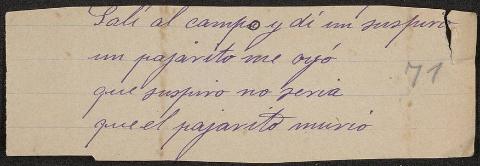 Salí al campo y dí un suspiro
un pajarito me oyó
71
que suspiro no seria
que el pajarito murió